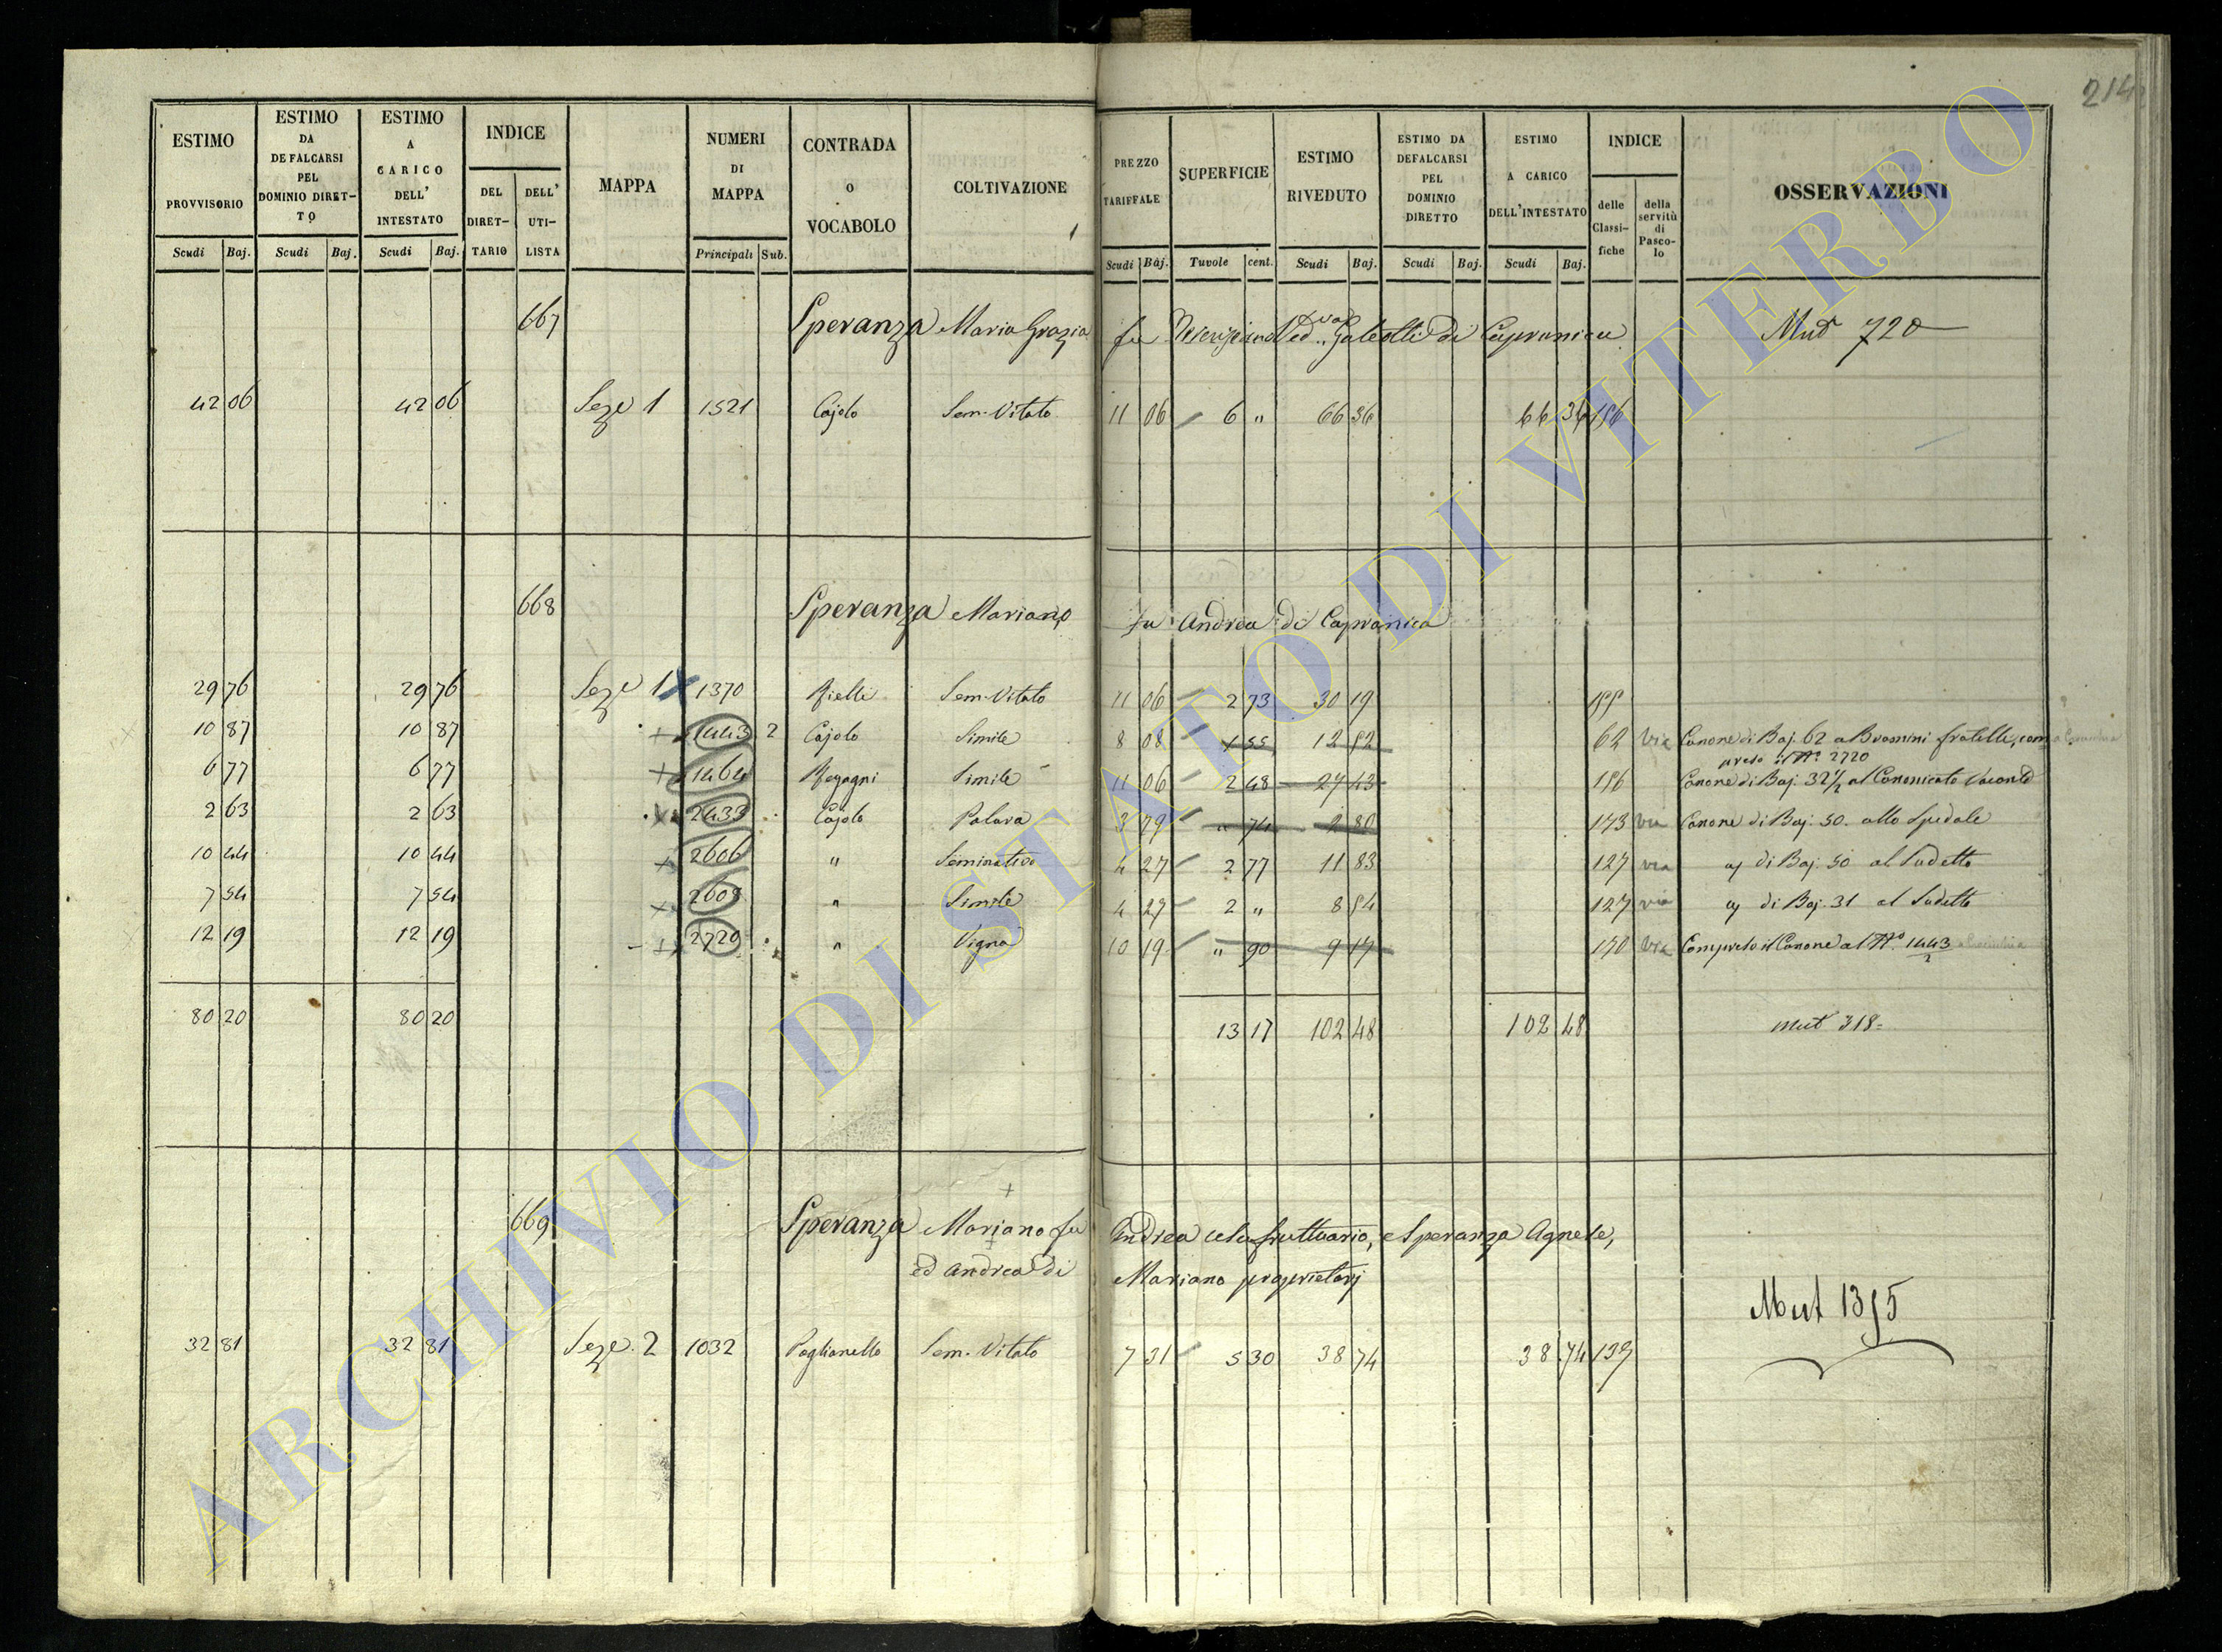 214
ESTIMO PROVVISORIO Scudi Baj.
ESTIMO DA DEFALCARSI PEL DOMINIO DIRET-TO Scudi Baj.
ESTIMO A CARICO DELL' INTESTATO Scudi Baj.
INDICE DEL DIRET-TARIO DELL' UTI-LISTA
MAPPA
NUMERI DI MAPPA Principali Sub.
CONTRADA O VOCABOLO
COLTIVAZIONE
PREZZO TARIFFALE Scudi Baj.
SUPERFICIE Tavole cent.
ESTIMO RIVEDUTO Scudi Baj.
ESTIMO DA DEFALCARSI PEL DOMINIO DIRETTO Scudi Baj.
ESTIMO A CARICO DELL'INTESTATO Scudi Baj.
INDICE delle Classi-fiche della servitù di Pasco-lo
OSSERVAZIONI
667 Speranza Maria Grazia fu Ved.va Galeotti di Capranica Mut 720
42 06 42 06 Seze 1 1521 Cajolo Sem. Vitato 11 06 6 " 66 36 66 36 156
668 Speranza Mariano fu Andrea di Capranica
29 76 29 76 Seze 1 X 1370 Rielli Sem. Vitato 11 06 2 73 30 19
10 87 10 87 + 1443 2 Cajolo Simile 8 08 1 55 12 52 62 via Canone di Baj. 62 a Bramini fratelli, com
preso il N.o 2720
6 77 6 77 + 1464 Simile 11 06 2 48 27 43 156 Canone di Baj. 32 1/2 al Canonicato Vacante
2 63 2 63 2433 Cajolo 3 79 " 74 2 80 173 via Canone di Baj. 50. allo Spedale
10 44 10 44 2606 " Seminativo 4 27 2 77 11 83 127 via di Baj. 50 al Sudetto
7 54 7 54 2609 " Simile 4 27 2 " 8 54 127 via di Baj. 31 al Sudetto
12 19 12 19 2720 " Vigna 10 19 " 90 9 17 170 via Compreso il Canone al N.o 1443/2
80 20 80 20 13 17 102 48 102 48 Mut 318=
669 Speranza Mariano fu Andrea usufruttuario, e Speranza Agnese,
ed Andrea di Mariano proprietarj
Mut 1355
32 81 32 81 Seze. 2 1032 Paglianello Sem. Vitato 7 31 5 30 38 74 38 74 139
ARCHIVIO DI STATO DI VITERBO